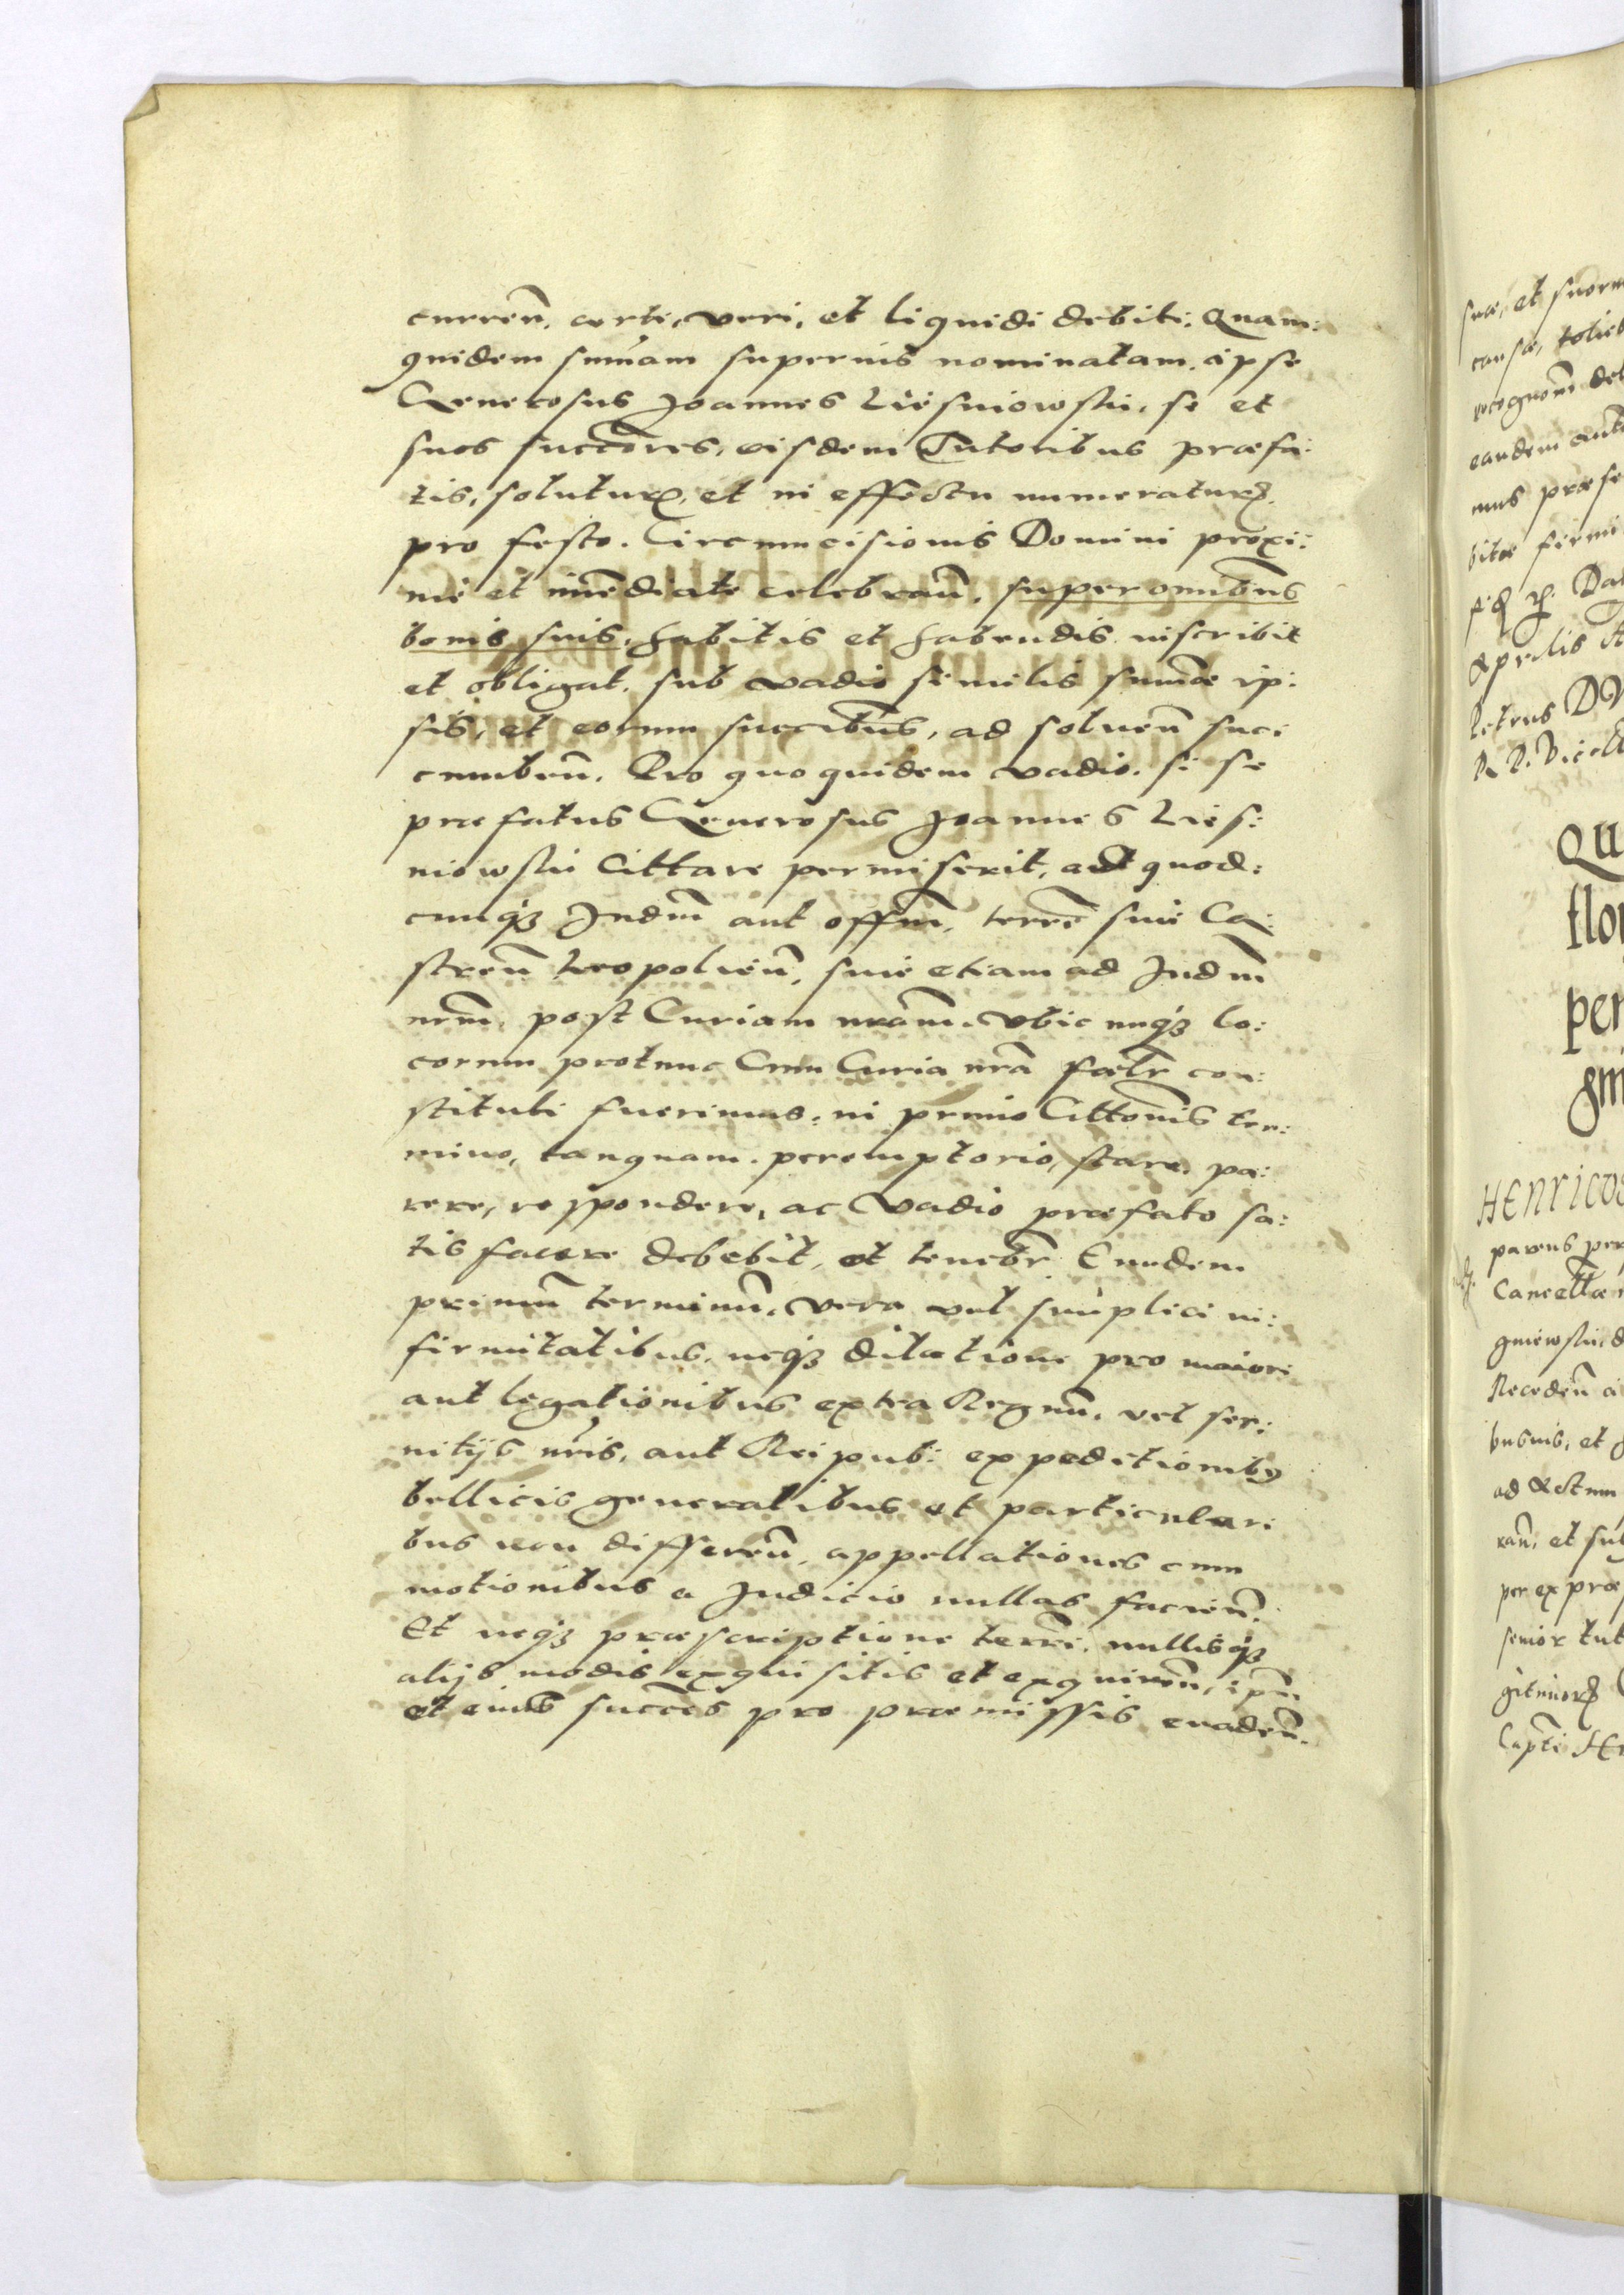 curreñ. certi, veri, et liquidi debiti. Quam:
quidem sum̃am superius nominatam. ipse
Generosus Joannes Liesniowski, se et
suos succ̃ores, eisdem Tutoribus præfa:
tis, soluturꝝ, et in effectu numeraturꝝ.
pro festo. Circumcisionis Domini proxi:
me et im̃ediate celebrañ. super om̃ibus
bonis suis, habitis et habendis inscribit
et obligat. sub vadio similis sum̃æ ip:
sis, et eorum succ̃ibus, ad solueñ suc:
cumbeñ. Pro quo quidem vadio. si se
præfatus Generosus Joannes Lies:
niowski Cittare permiserit, ad quod:
cunqꝫ Judm̃ aut offm̃, terrẽ siue Ca:
streñ Leopolieñ, siue etiam ad Judm̃
nr̃m, post Curiam nr̃am. vbicunqꝫ lo:
corum protunc Cum Curia nr̃a fælr̃ con:
stituti fuerimus, in primo Citto͠nis ter:
mino, tanquam peremptorio, stare, pa:
rere, respondere, ac Vadio præfato sa:
tisfacere debebit, et tenebr̃ Eundem
primũ terminũ, vera vel simplici in:
firmitatibus, neqꝫ dilatione pro maiori
aut legationibus extra Regnũ, vel ser:
uitijs nr̃is, aut Reipub: expeditionibꝯ
bellicis generalibus et particulari
bus non differeñ, appellationes cum
motionibus a Judicio nullas facieñ.
Et neqꝫ præscriptione terrẽ. nullisqꝫ
alijs modis exquisitis et exquireñ, ipm̃
et eius succ̃es pro præmissis euadeñ.
suæ, et
causæ,
eandem
mus
bitæ
Aprilis
QU
HENRICVS
parens
Recedeñ
et
per ex
senior